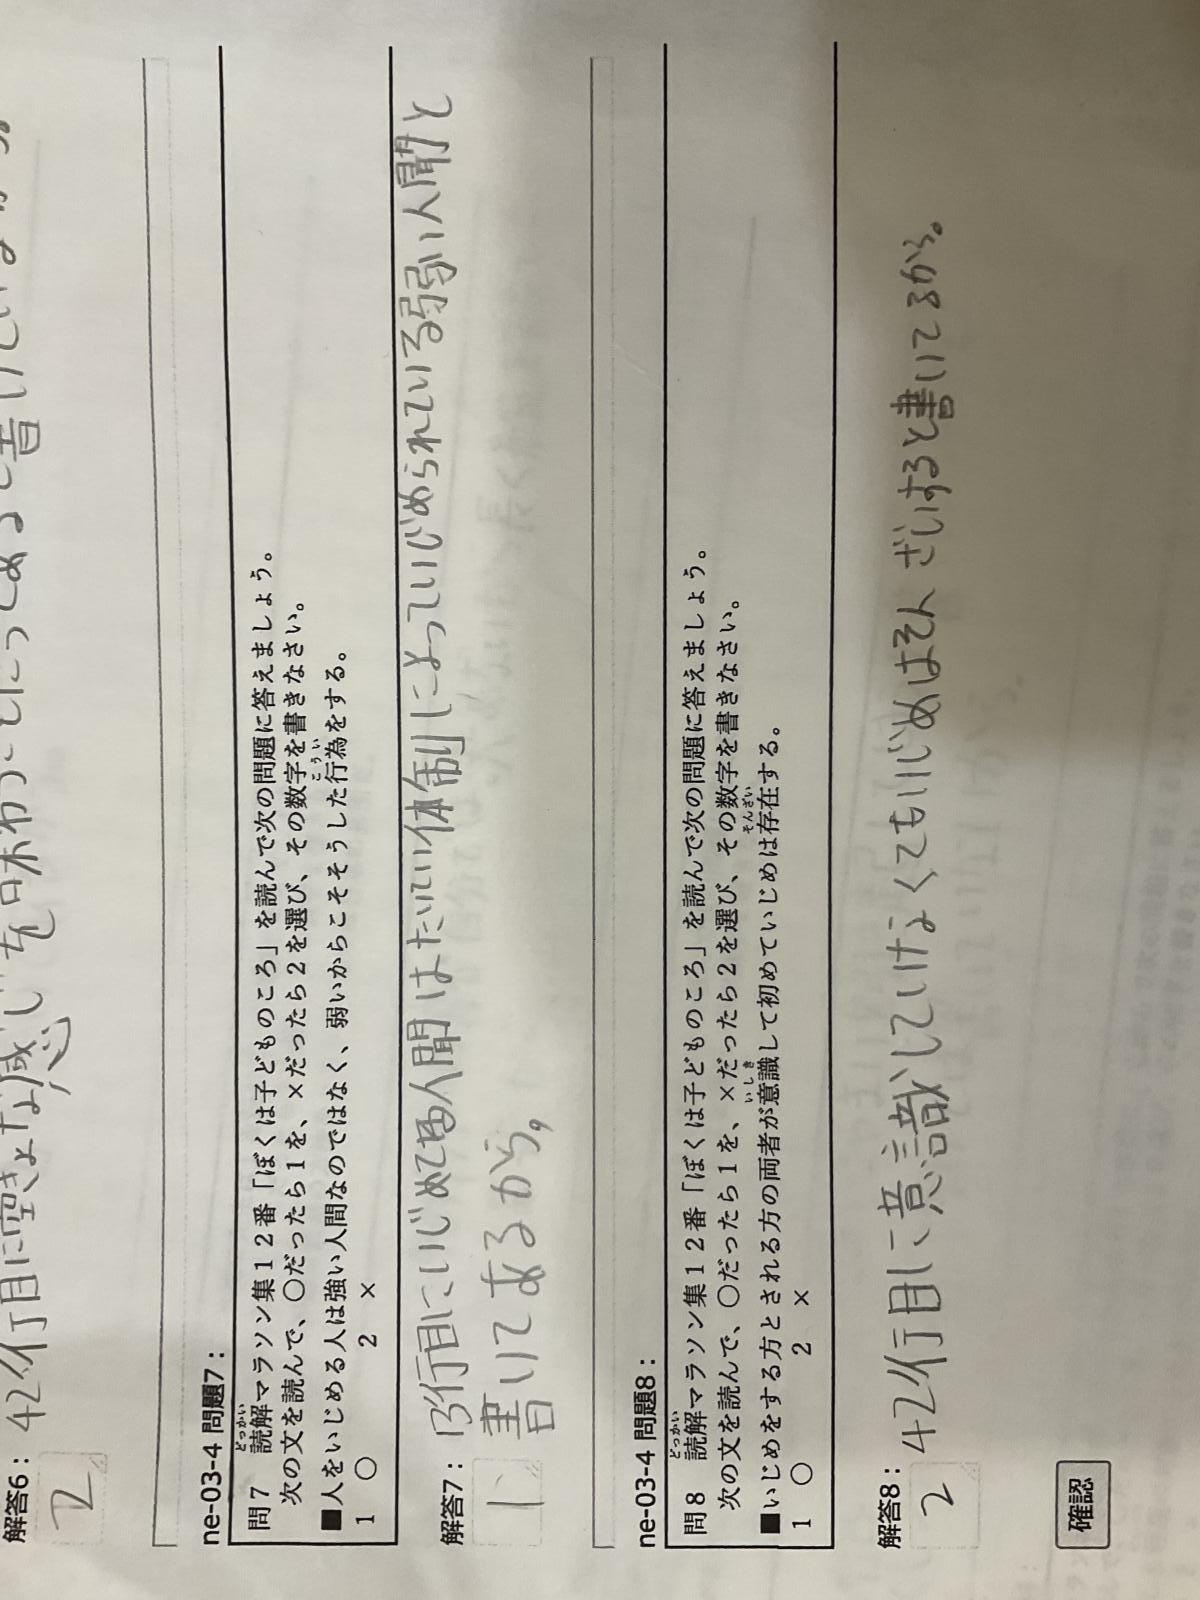 解答6：
42行目に空きょな感じを味わうことにってあると書けているから。
2
ne-03-4 問題7：
問7 読解マラソン集12番「ぼくは子どものころ」を読んで次の問題に答えましょう。
次の文を読んで、〇だったら1を、×だったら2を選び、その数字を書きなさい。
■人をいじめる人は強い人間なのではなく、弱いからこそそうした行為をする。
1 〇 2 ×
解答7：
13行目にいじめてる人間はたいてい体制によっていじめられている弱い人間と
書いてあるから。
1
ne-03-4 問題8：
問8 読解マラソン集12番「ぼくは子どものころ」を読んで次の問題に答えましょう。
次の文を読んで、〇だったら1を、×だったら2を選び、その数字を書きなさい。
■いじめをする方とされる方の両者が意識して初めていじめは存在する。
1 〇 2 ×
解答8：
42行目に意識していけなくてもいじめはそんざいすると書いてるから。
2
確認